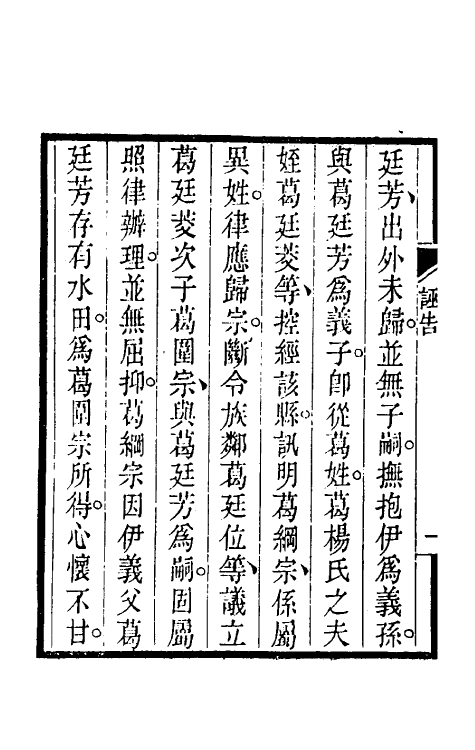 誣告
一
廷芳、出外未歸。並無子嗣。撫抱伊爲義孫。
與葛廷芳爲義子。卽從葛姓。葛楊氏之夫
姪葛廷菱等、控經該縣。訊明葛綱宗、係屬
異姓。律應歸宗。斷令族鄰葛廷位等、議立
葛廷菱次子葛圍宗、與葛廷芳爲嗣。固屬
照律辦理。並無屈抑。葛綱宗因伊義父葛
廷芳存有水田。爲葛圍宗所得。心懷不甘。